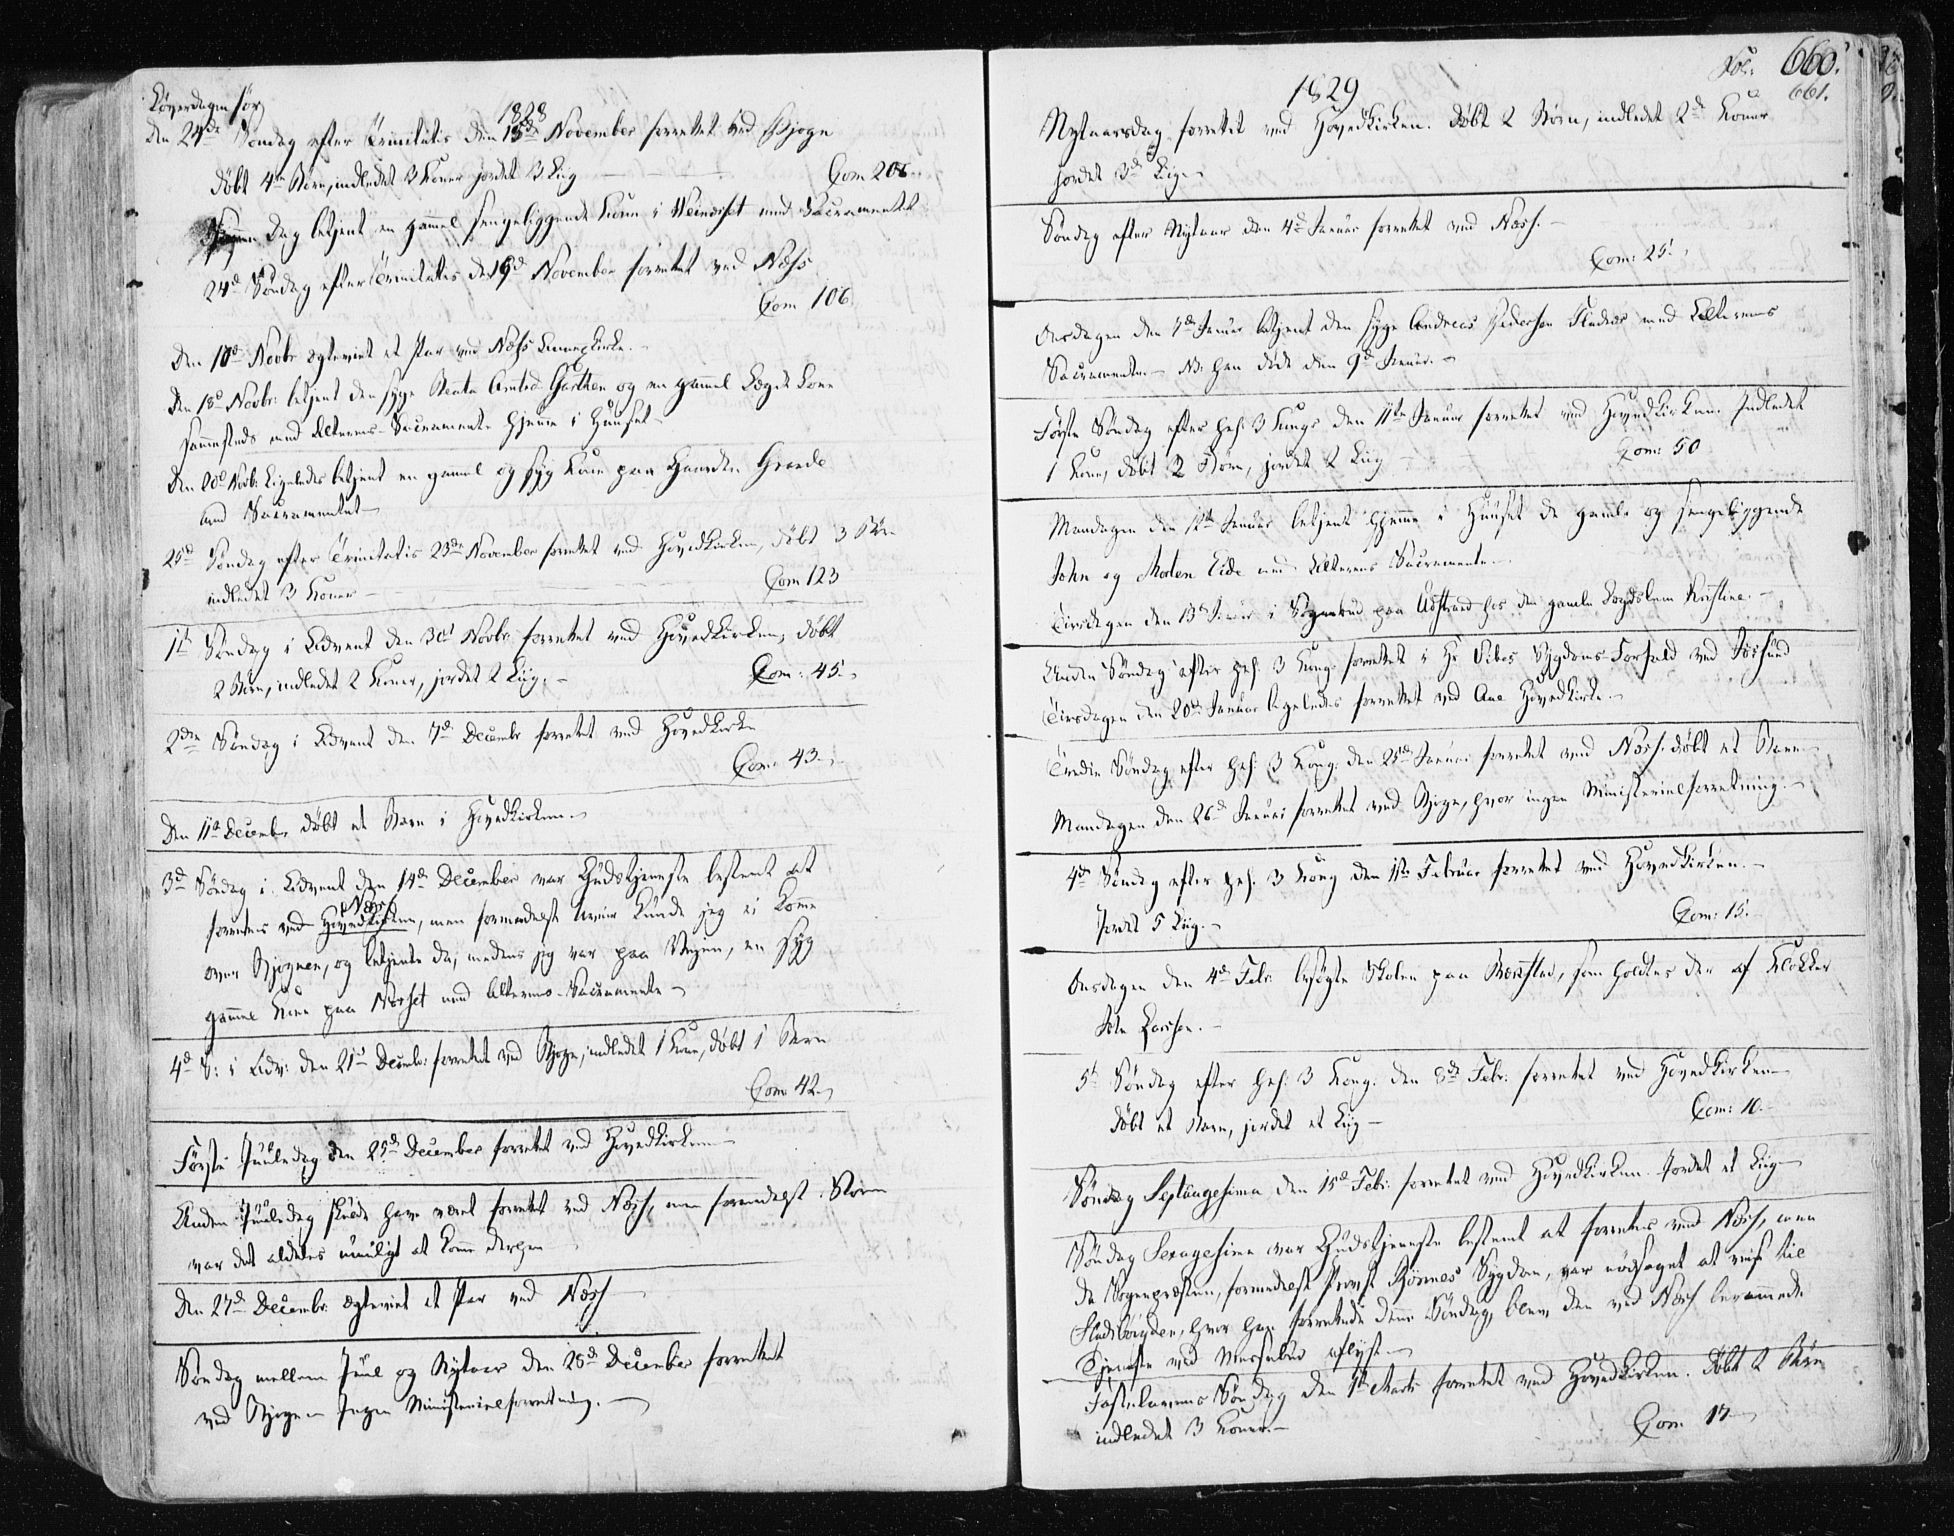 Løverdagen før
1828
den 24de Søndag efter Trinitatis den 15de November forrettet ved Bjogn
døbt 4re Børn, indledet 3 Koner jordet 3 Liig
Com 206.
Dag betjent en gammel sengeliggende Kone i med Sacramentet
24de Søndag efter Trinitatis den 16de November forrettet ved Næss
Com 106.
Den 17de Novbr ægteviet et Par ved Næss Annexkirke.
Den 18de Novbr: betjent den syge Garthen og en gammel Lægds Kone
sammesteds med Alterens Sacramente hjemme i Huuset
Den 20de Novbr: Ligeledes betjent en gammel og syg Kone paa Gaarden Grande
med Sacramentet
25de Søndag efter Trinitatis 23de November forrettet ved Hovedkirken, døbt 3 Børn
indledet 3 Koner
Com 123
1ste Søndag i Advent den 30te Novbr forrettet ved Hovedkirken, døbt
2 Børn, indledet 2 Koner, jordet 2 Liig.
Com: 45.
2den Søndag i Advent den 7de Decembr forrettet ved Hovedkirke
Com: 43.
Den 11te Decembr døbt et Barn i Hovedkirken.
3de Søndag i Advent den 14de December var Gudstjeneste bestemt at
Næss
forrettes ved Hovedkirken, men formedelst kunde jeg ei komme
over Bjognen, og betjente da, medens jeg var paa Veien, en syg
gammel Kone paa med Alterens Sacramente
4de S: i Adv: den 21de Decembr: forrettet ved Bjogn, indledet 1 Kone, døbt 1 Barn
Com: 42.
Første Juuledag den 25de December forrettet ved Hovedkirken
Anden Juuledag skulde have været forrettet ved Næss, men formedelst Storm
var det aldeles umuligt at komme derhen
Den 27de Decembr: ægteviet et Par ved Næss
Søndag mellem Juul og Nytaar den 28de December forrettet
ved Bjogn Ingen Ministerialforretning.
Fol: 660.
661.
1829
Nytaarsdag forrettet ved Hovedkirken. Døbt 2 Børn, indledet 2de Koner
jordet 3de Liig
Søndag efter Nytaar den 4de Januar forrettet ved Næss.
Com: 25.
Onsdagen den 7de Januar betjent den syge Andreas Pedersen med Alterens
Sacramente. NB: han døde den 9de Januar.
Første Søndag efter hel: 3 Konge den 11te Januar forrettet ved Hovedkirken. Indledet
1 Kone, døbt 2 Børn, jordet 2 Liig
Com: 50
Mandagen den 12te Januar betjent hjemme i Huuset de gamle og sengeliggende
John og Eide med Alterens Sacramente.
Tirsdagen den 13de Januar i paa hos den gamle Lægdslem Kirstine.
Anden Søndag efter hel: 3 Kong: forrettet i Hr Vibes Sygdoms Forfald ved Jøssund
Tirsdagen den 20de Januar ligeledes forrettet ved Aae Hovedkirke.
Tredie Søndag efter hel: 3 Kong: den 25de Januar forrettet ved Næss. døbt et Barn
Mandagen den 26de Januar forrettet ved Bjogn, hvor ingen Ministerialforretning.
4de Søndag efter hel: 3 Kong den 1ste Februar forrettet ved Hovedkirken.
Jordet 5 Liig.
Com: 15.
Onsdagen den 4de Febr: besøgte Skolen paa som holdtes der af Klokker
Larssen.
5te Søndag efter hel: 3 Kong: den 8de Febr: forrettet ved Hovedkirken
døbt et Barn, jordet et Liig
Com: 10.
Søndag Septuagesima den 15de Febr: forrettet ved Hovedkirken. Jordet et Liig
Søndag Sexagesima var Gudstjeneste bestemt at forrettes ved Næss, men
da Sognepresten, formedelst Provst Sygdom, var nødsaget at reise til
Stadsbøygden, hvor han forrettede denne Søndag, blev den ved Næss berammede
Tjeneste ved aflyst.
Fastelavns Søndag den 1ste Marts forrettet ved Hovedkirken. Døbt 2 Børn
indledet 3 Koner.
Com 17